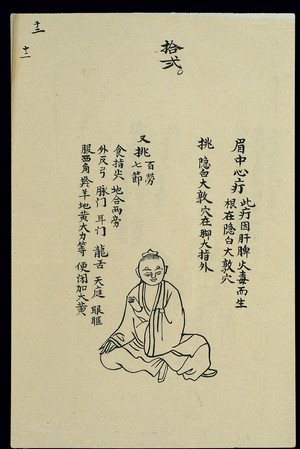 十三
十二
拾弍。
眉中心疔 此疔因肝脾火毒而生
根在隐白大敦穴
挑 隐白大敦 穴在脚大指外
又挑 百劳
七節
食指尖 地合两旁
外反弓 脉门 耳门 龍舌 天庭 眼眶
服西角羚羊地黄大力等 便闭加大黄